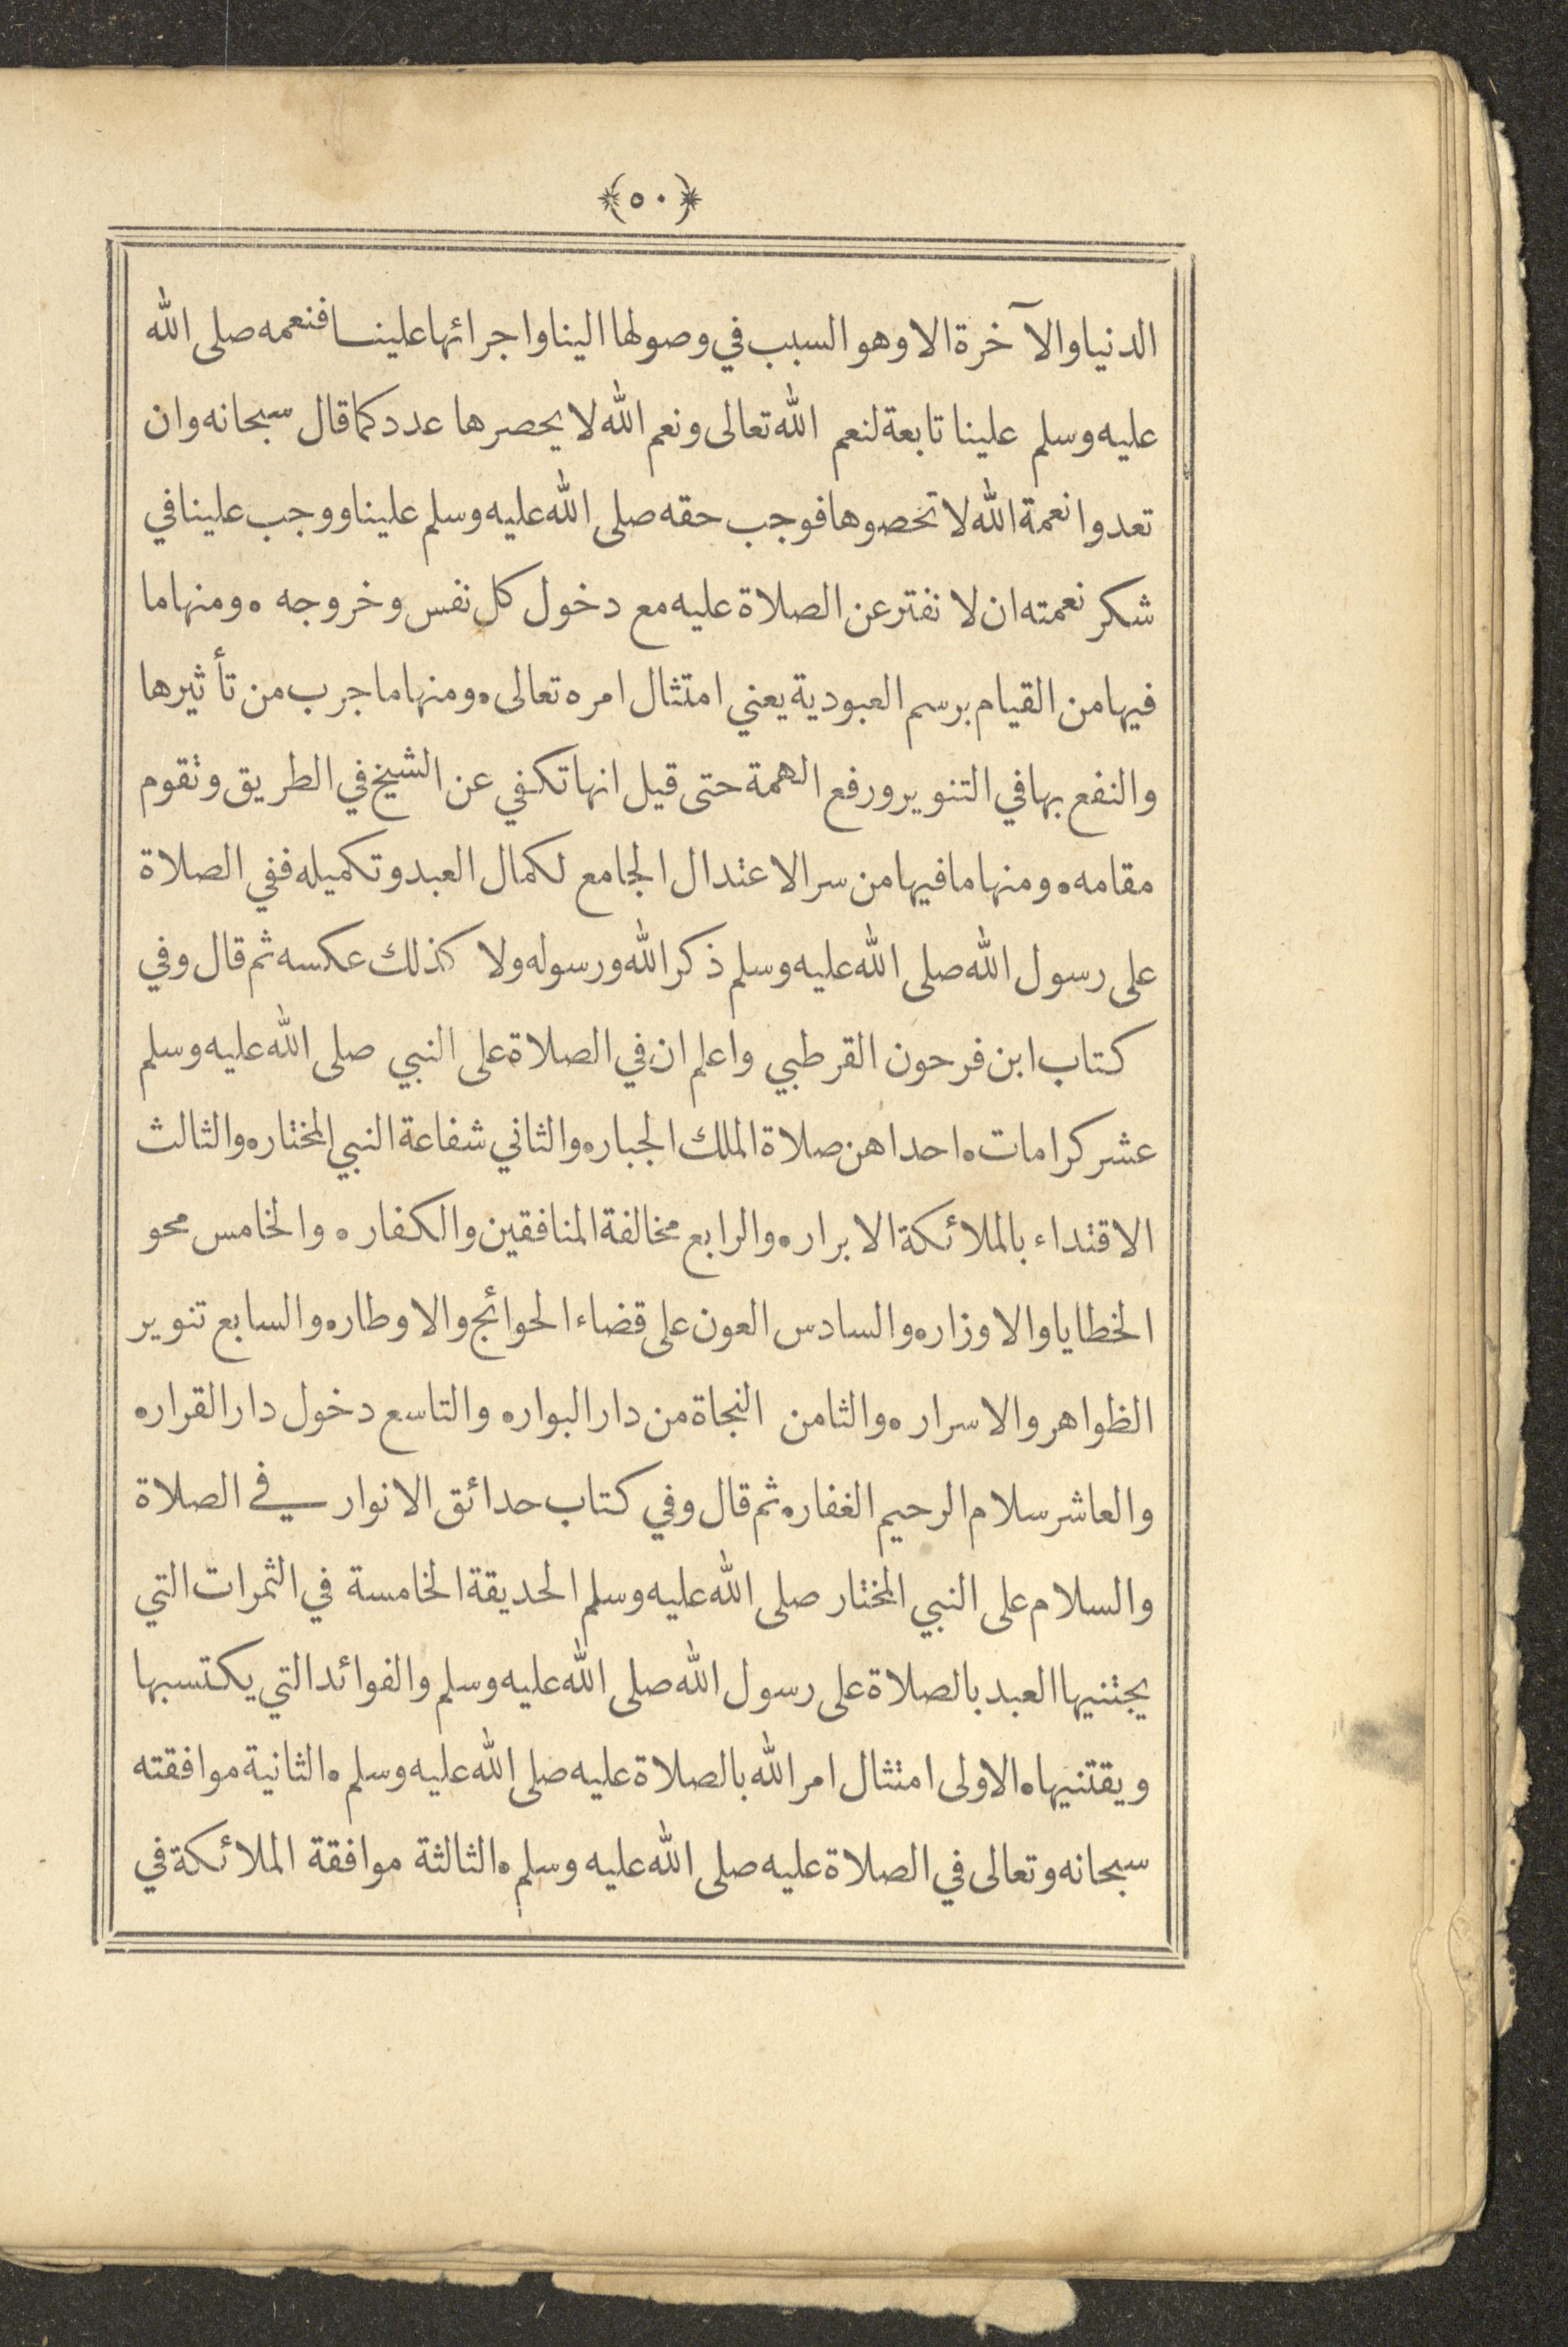 ﴿٥٠﴾
الدنيا والآخرة الا وهو السبب في وصولها الينا واجرائها علينا فنعمه صلى الله
عليه وسلم علينا تابعة لنعم الله تعالى ونعم الله لا يحصرها عدد كما قال سبحانه وان
تعدوا نعمة الله لا تحصوها فوجب حقه صلى الله عليه وسلم علينا ووجب علينا في
شكر نعمته ان لا نفتر عن الصلاة عليه مع دخول كل نفس وخروجه ٠ ومنها ما
فيها من القيام برسم العبودية يعني امتثال امره تعالى ٠ ومنها ما جرب من تأثيرها
والنفع بها في التنوير ورفع الهمة حتى قيل انها تكفي عن الشيخ في الطريق وتقوم
مقامه ٠ ومنها ما فيها من سر الاعتدال الجامع لكمال العبد وتكميله ففي الصلاة
على رسول الله صلى الله عليه وسلم ذكر الله ورسوله ولا كذلك عكسه ثم قال وفي
كتاب ابن فرحون القرطبي واعلم ان في الصلاة على النبي صلى الله عليه وسلم
عشر كرامات ٠ احداهن صلاة الملك الجبار ٠ والثاني شفاعة النبي المختار ٠ والثالث
الاقتداء بالملائكة الابرار ٠ والرابع مخالفة المنافقين والكفار ٠ والخامس محو
الخطايا والاوزار ٠ والسادس العون على قضاء الحوائج والاوطار ٠ والسابع تنوير
الظواهر والاسرار ٠ والثامن النجاة من دار البوار ٠ والتاسع دخول دار القرار ٠
والعاشر سلام الرحيم الغفار ٠ ثم قال وفي كتاب حدائق الانوار في الصلاة
والسلام على النبي المختار صلى الله عليه وسلم الحديقة الخامسة في الثمرات التي
يجتنيها العبد بالصلاة على رسول الله صلى الله عليه وسلم والفوائد التي يكتسبها
ويقتنيها ٠ الاولى امتثال امر الله بالصلاة عليه صلى الله عليه وسلم ٠ الثانية موافقته
سبحانه وتعالى في الصلاة عليه صلى الله عليه وسلم ٠ الثالثة موافقة الملائكة في